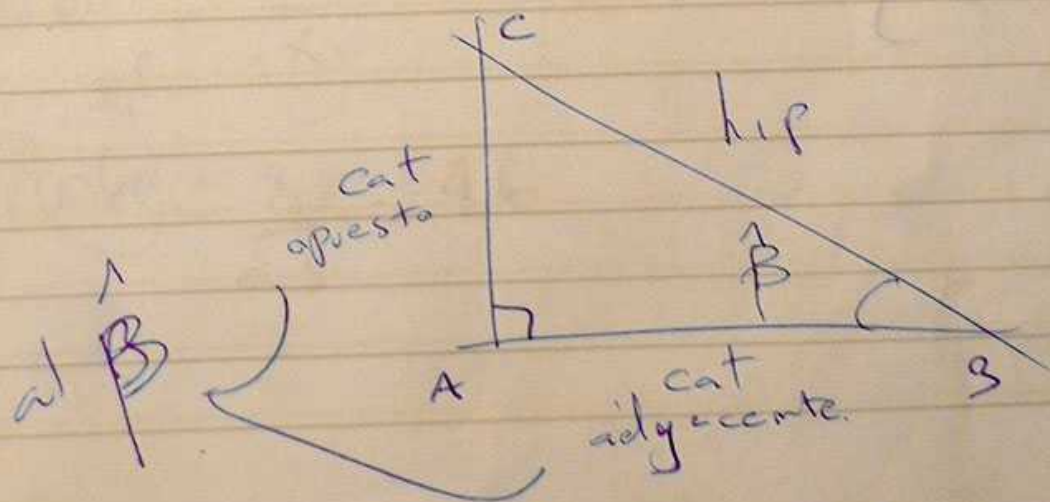 C
hip
cat
opuesto
β̂
al β̂
A
cat
adyacente.
B